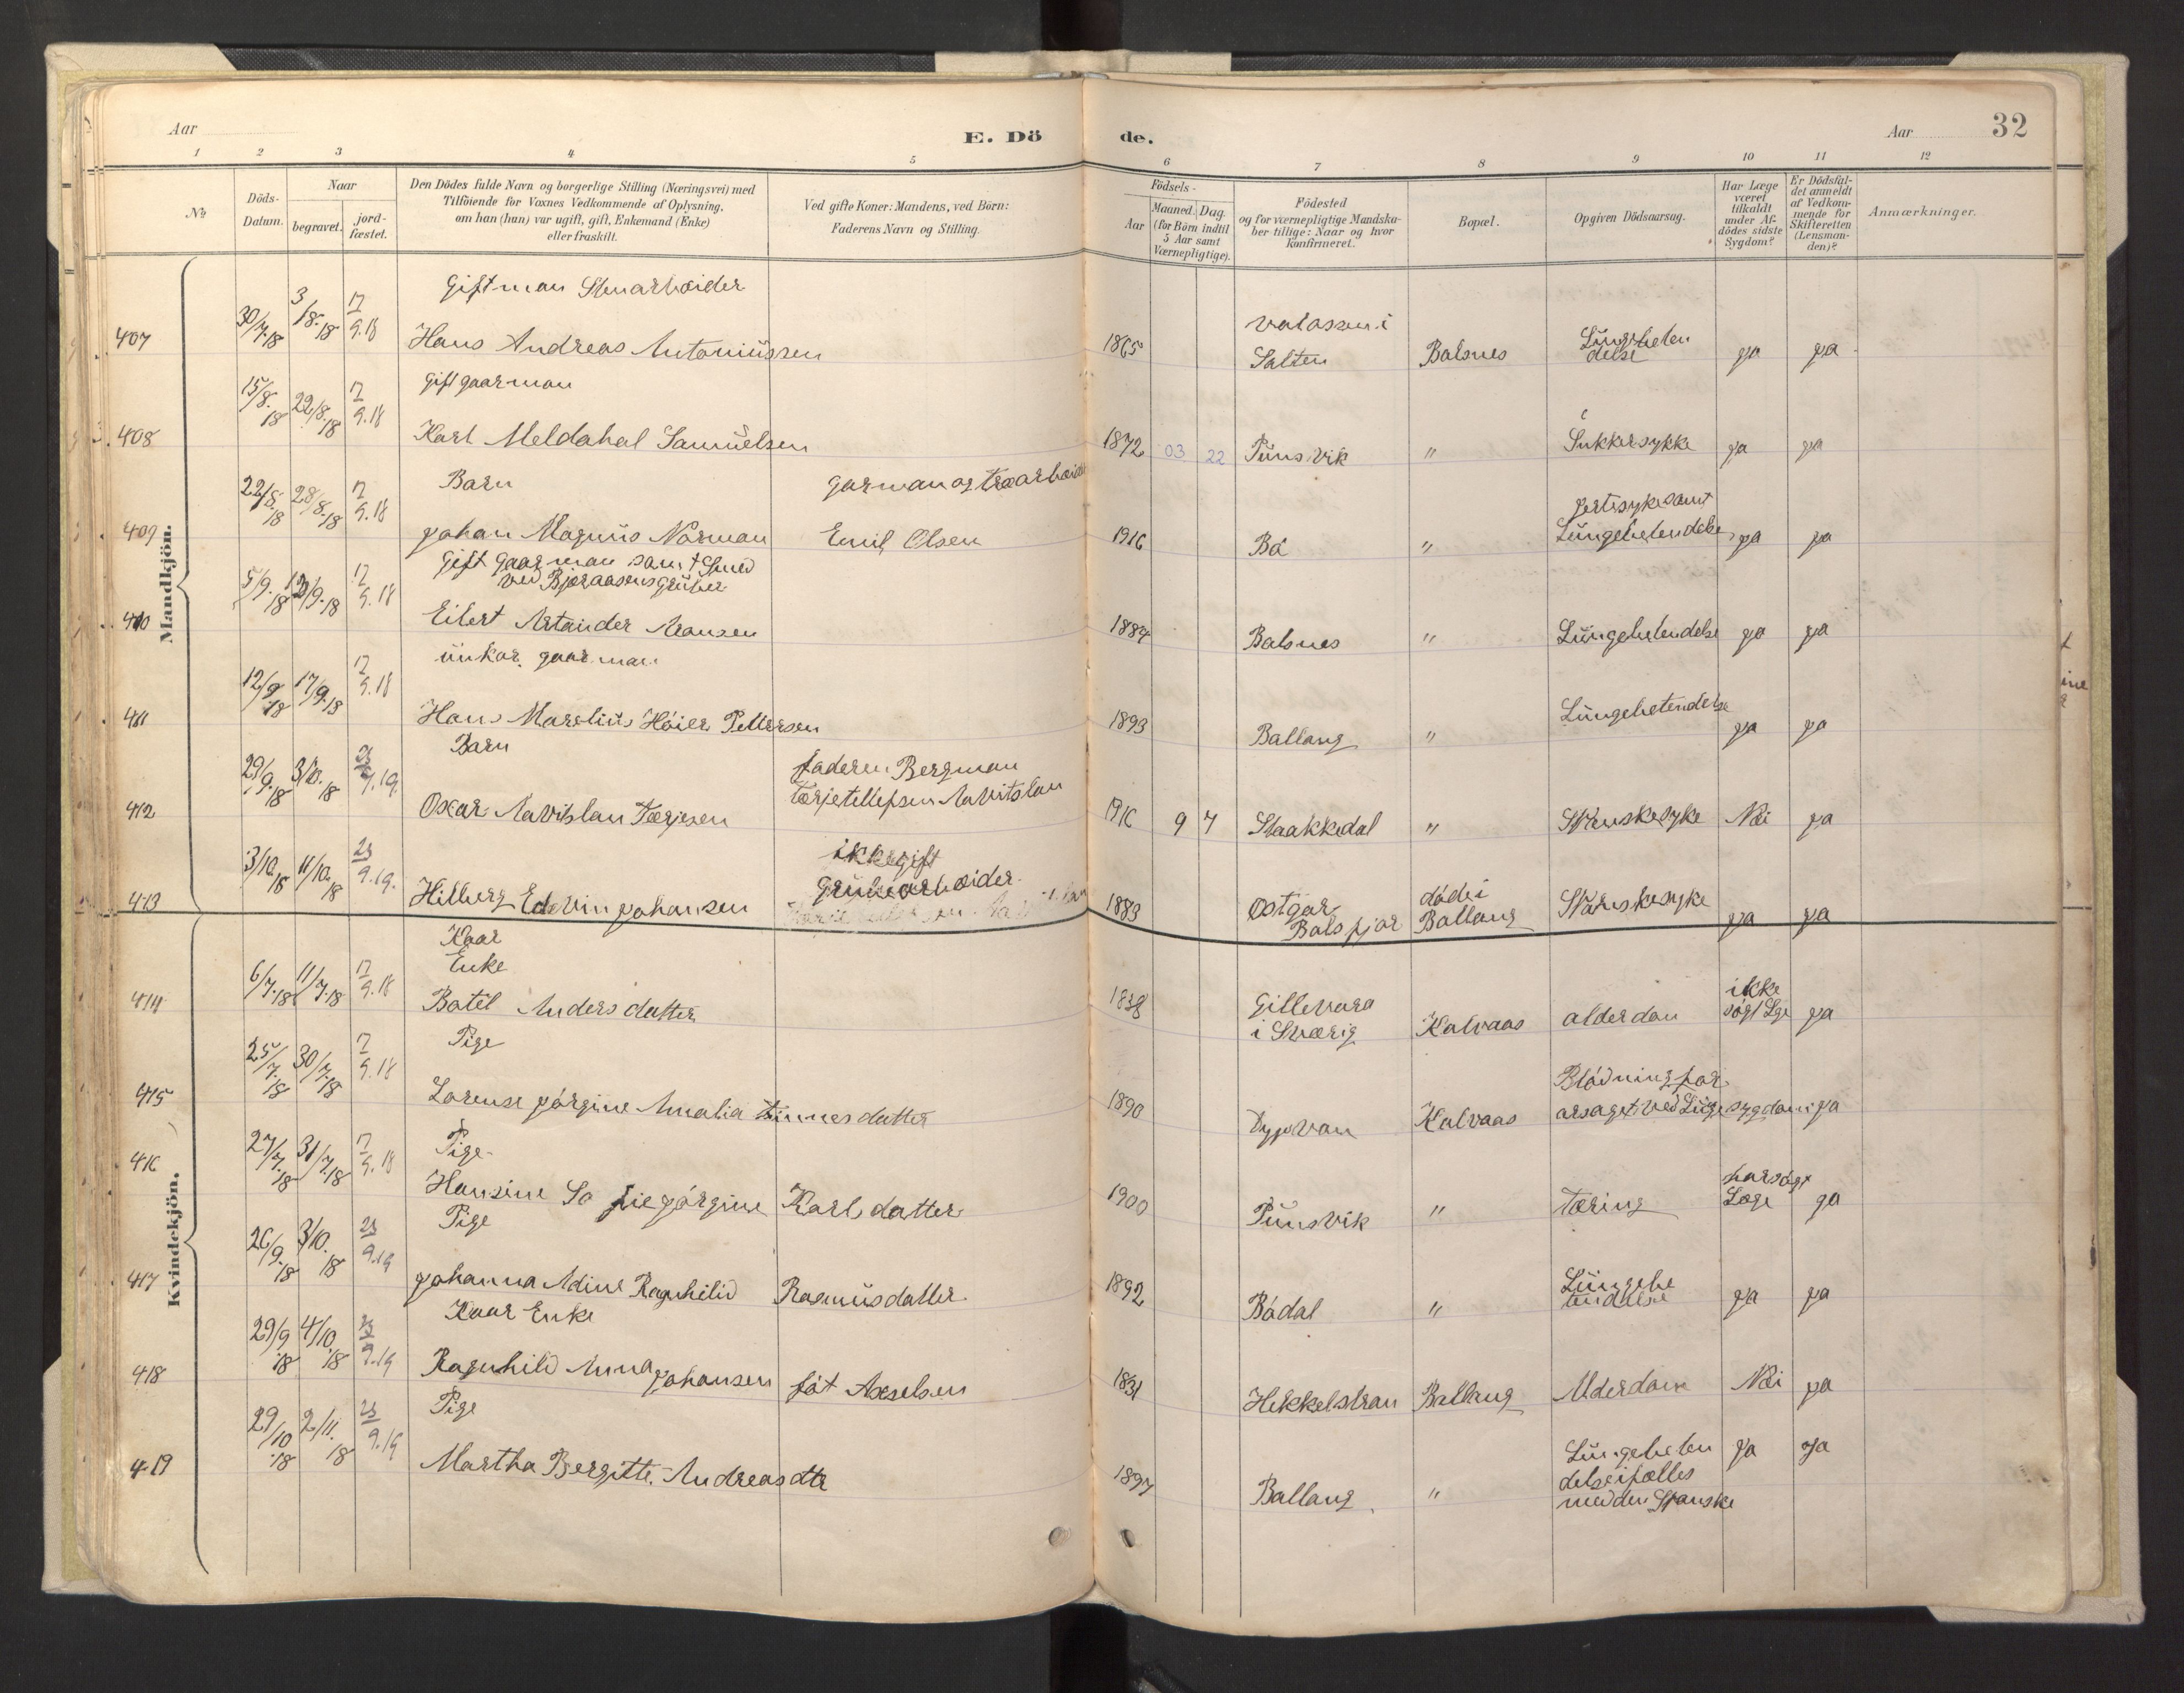 Aar
E. Dö
de.
Aar
32
1 2 3 4 5 6 7 8 9 10 11 12
No
Döds-
Datum.
Naar
begravet.
jord-
fæstet.
Den Dödes fulde Navn og borgerlige Stilling (Næringsvei) med
Tilföiende for Voxnes Vedkommende af Oplysning,
om han (hun) var ugift, gift, Enkemand (Enke)
eller fraskilt.
Ved gifte Koner: Mandens, ved Börn:
Faderens Navn og Stilling.
Födsels-
Aar
Maaned. Dag.
(for Börn indtil
5 Aar samt
Værnepligtige).
Födested
og for værnepligtige Mandska-
ber tillige: Naar og hvor
konfirmeret.
Bopæl.
Opgiven Dödsaarsag.
Har Læge
været
tilkaldt
under Af-
dödes sidste
Sygdom?
Er Dödsfal-
det anmeldt
af Vedkom-
mende for
Skifteretten
(Lensman-
den)?
Anmærkninger.
Mandkjön.
Giftman Stenarbeider
407 30/7.18 3/8.18 17/9.18 Hans Andreas Antoniussen 1865 Salten Balsnes Lungebeten
delse ja ja
Gift gaarman
408 15/8.18 22/8.18 17/9.18 Karl Meldahal Samuelsen 1872 03 22 Punsvik " Sukkersykke ja ja
Barn garman og træarbeid
409 22/8.18 28/8.18 17/9.18 johan Magnus Norman Emil Olsen 1916 Bö " jertesyke samt
Lungebetendelse ja ja
Gift gaarman samt Smed
ved Bjøraasens gruber
410 5/9.18 17/9.18 Eilert Artander Aronsen 1884 Balsnes " Lungebetendelse ja ja
unkar. gaarman
411 12/9.18 17/9.18 17/9.18 Hans Marelius Höier Pettersen 1893 Ballang " Lungebetendelse ja ja
Barn faderen Bergman
Tærjetellefsen Navitslan
412 29/9.18 3/10.18 23/9.19 Oscar Navitslan Tærjesen 1916 9 7 Staakkedal " Spanskesyke Nei ja
ikke gift
grubearbeider
413 3/10.18 11/10.18 23/9.19. Hilberg Edevin johansen 1883 Ostgar
Balsfjor döde i
Ballang Spanskesyke ja ja
Kvindekjön.
Kaar
Enke
414 6/7.18 11/7.18 17/9.18 Batel Andersdatter 1838 Gillevara
i Sværig Kalvaas alderdom ikke
sögt Lge ja
Pige
415 25/7.18 30/7.18 17/9.18 Lorense jörgine Amalia Tinnesdatter 1890 Dypvan Kalvaas Blödning for
arsaget ved Lungesygdom ja
Pige
416 27/7.18 31/7.18 17/9.18 Hansine Sofie jörgine Karlsdatter 1900 Punsvik " Tæring har sögt
Læge ja
Pige
417 26/9.18 3/10.18 23/9.19 johanna Adine Ragnhild Rasmusdatter 1892 Bödal " Lungebe
tendelse ja ja
Kaar Enke
418 29/9.18 4/10.18 23/9.19 Ragnhild Anna johansen föt Axselsen 1831 Hekkelstran Ballang Alderdom Nei ja
Pige
419 29/10.18 2/11.18 23/9.19 Martha Bergitte Andreasdtr 1897 Ballang " Lungebeten
delse i fælles
med den Spanske ja ja